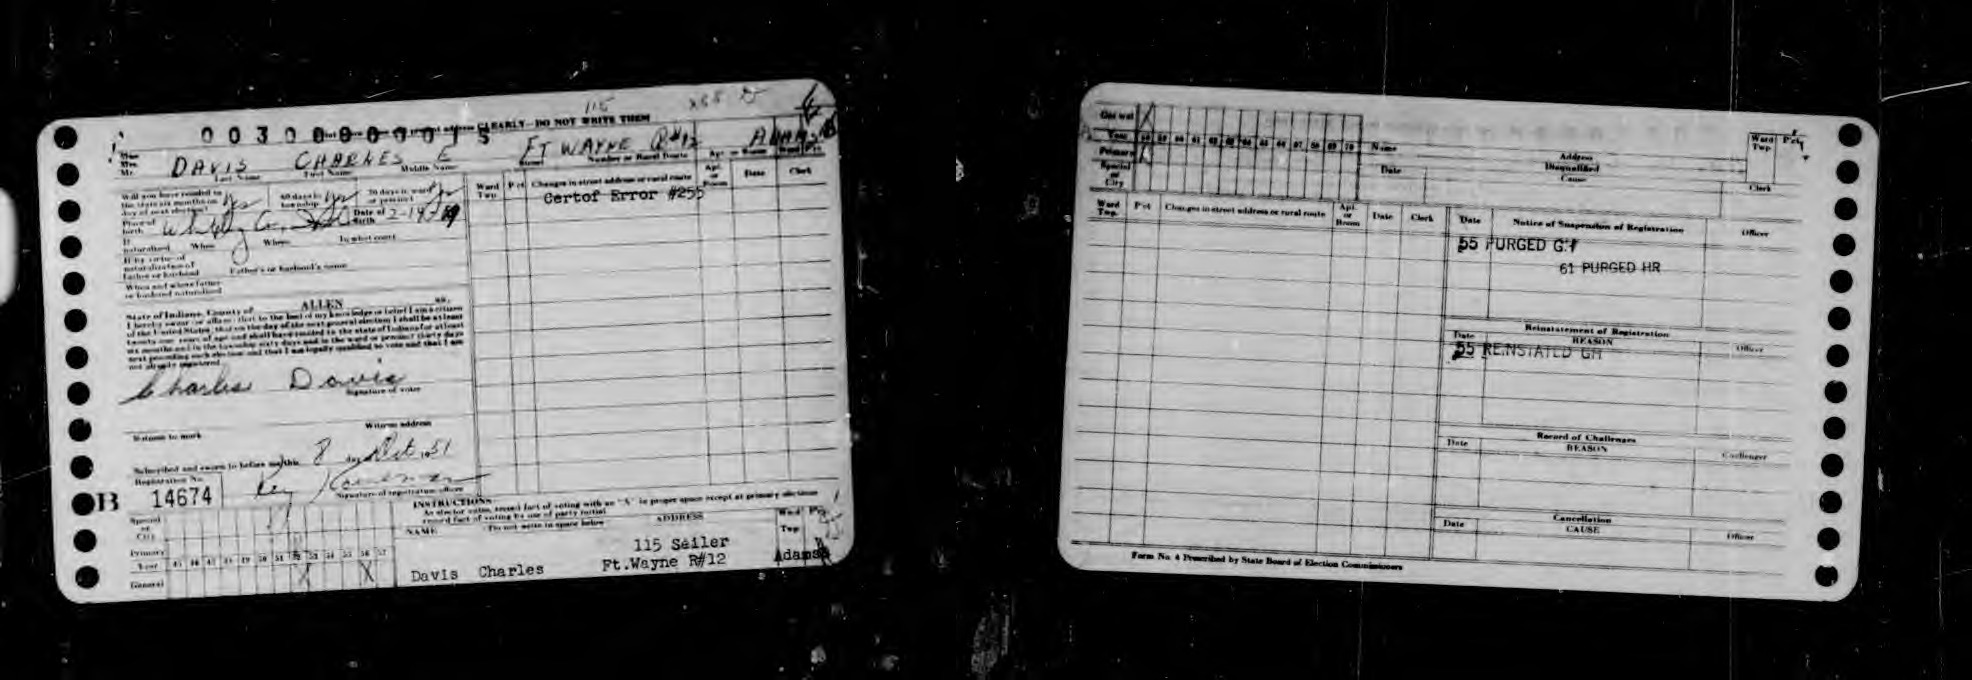 115
CLEARLY—DO NOT WRITE THEM
DAVIS CHARLES E FT WAYNE R#12 ADAMS
Last Name First Name Middle Name Street Number or Rural Route
Will you have resided in the state six months on day of next election? yes 60 days in township yes 30 days in ward or precinct yes
Place of birth Date of Birth 2-19-
If naturalized When Where In what court
If by virtue of naturalization of father or husband Father's or husband's name
When and where father or husband naturalized
State of Indiana, County of ALLEN ss.
I hereby swear (or affirm) that to the best of my knowledge or belief I am a citizen
of the United States, that on the day of the next general election I shall be at least
twenty-one years of age and shall have resided in the state of Indiana for at least
six months and in the township sixty days and in the ward or precinct thirty days
next preceding such election and that I am legally qualified to vote and that I am
not already registered.
Charles Davis
Signature of voter
Witness to mark Witness address
Subscribed and sworn to before me this 8 day Oct 1951
Registration No.
B 14674
Signature of registration officer
Ward Twp. Pct Changes in street address or rural route Apt. or Room Date Clerk
Certof Error #255
INSTRUCTIONS
An elector votes, record fact of voting with an "X" in proper space except at primary elections
record fact of voting by use of party initial
Special or City
Primary
Year 45 46 47 48 49 50 51 52 53 54 55 56 57
General X X
NAME Do not write in space below ADDRESS Ward Twp Pct
115 Seiler
Davis Charles Ft.Wayne R#12 Adams
General X
Year 58 59 60 61 62 63 64 65 66 67 68 69 70
Primary
Special or City
Name Address Ward Twp Pct
Date Disqualified
Cause Clerk
Ward Twp. Pct Changes in street address or rural route Apt. or Room Date Clerk
Date Notice of Suspension of Registration Officer
55 PURGED
61 PURGED HR
Reinstatement of Registration
Date REASON Officer
55 REINSTATED GM
Record of Challenges
Date REASON Challenger
Cancellation
Date CAUSE Officer
Form No. 4 Prescribed by State Board of Election Commissioners